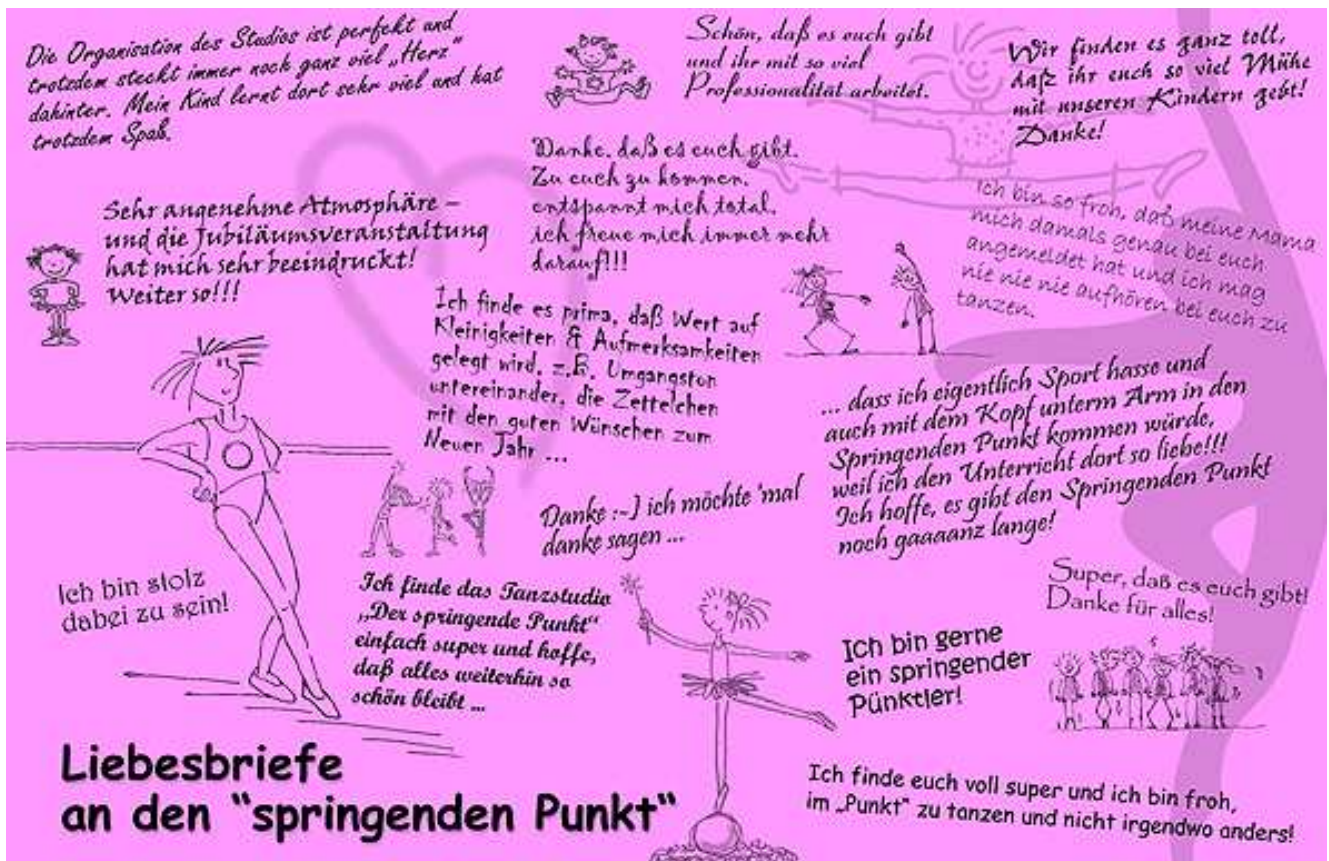 Die Organisation des Studios ist perfekt und
trotzdem steckt immer noch ganz viel „Herz"
dahinter. Mein Kind lernt dort sehr viel und hat
trotzdem Spaß.
Schön, daß es euch gibt
und ihr mit so viel
Professionalität arbeitet.
Wir finden es ganz toll,
daß ihr euch so viel Mühe
mit unseren Kindern gebt!
Danke!
Danke, daß es euch gibt.
Zu euch zu kommen,
entspannt mich total,
ich freue mich immer mehr
darauf!!!
Sehr angenehme Atmosphäre –
und die Jubiläumsveranstaltung
hat mich sehr beeindruckt!
Weiter so!!!
Ich bin so froh, daß meine Mama
mich damals genau bei euch
angemeldet hat und ich mag
nie nie nie aufhören bei euch zu
tanzen.
Ich finde es prima, daß Wert auf
Kleinigkeiten & Aufmerksamkeiten
gelegt wird, z.B. Umgangston
untereinander, die Zettelchen
mit den guten Wünschen zum
Neuen Jahr ...
... dass ich eigentlich Sport hasse und
auch mit dem Kopf unterm Arm in den
Springenden Punkt kommen würde,
weil ich den Unterricht dort so liebe!!!
Ich hoffe, es gibt den Springenden Punkt
noch gaaaanz lange!
Danke :-) ich möchte 'mal
danke sagen ...
Ich bin stolz
dabei zu sein!
Ich finde das Tanzstudio
„Der springende Punkt"
einfach super und hoffe,
daß alles weiterhin so
schön bleibt ...
Super, daß es euch gibt!
Danke für alles!
Ich bin gerne
ein springender
Pünktler!
Liebesbriefe
an den "springenden Punkt"
Ich finde euch voll super und ich bin froh,
im „Punkt" zu tanzen und nicht irgendwo anders!